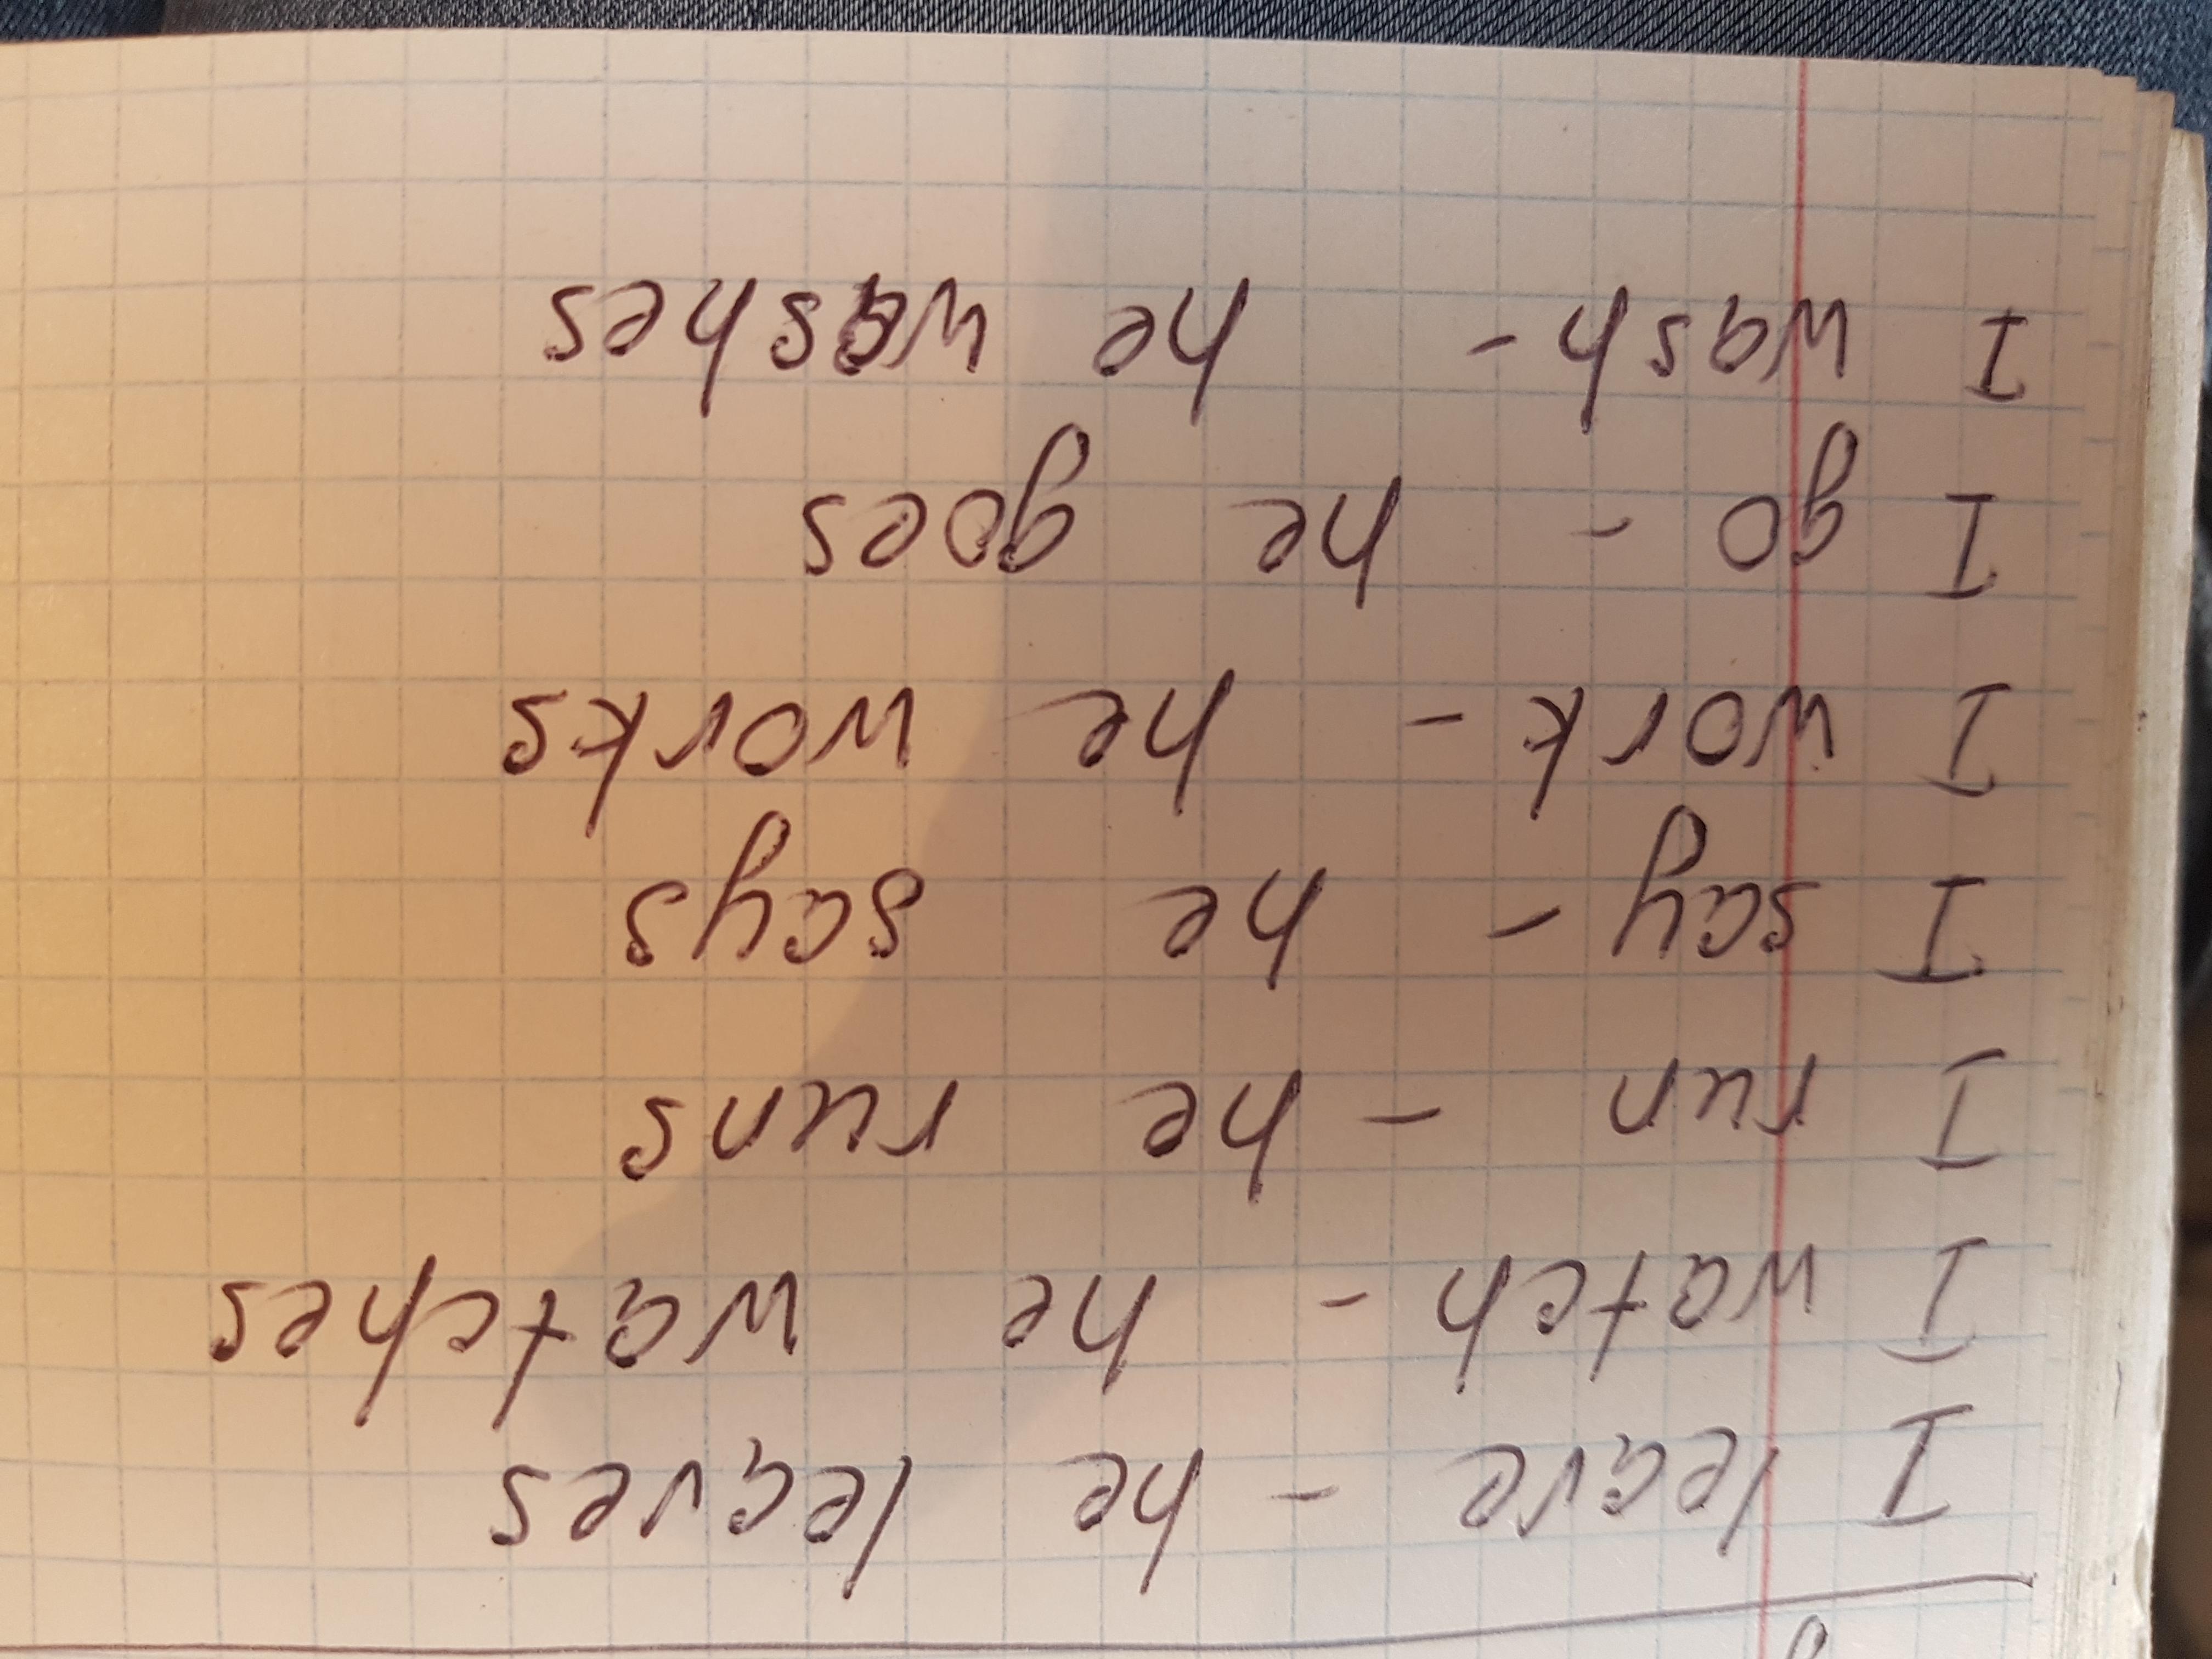 I leave - he leaves
I watch - he watches
I run - he runs
I say - he says
I work - he works
I go - he goes
I wash - he washes